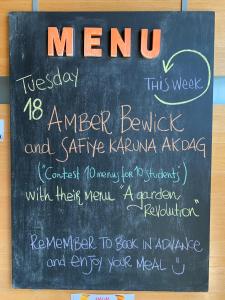 MENU
Tuesday
THIS WEEK
18
AMBER BEWICK
and SAFIYE KARUNA AKDAG
("Contest 10 menus for 10 students")
with their menu "A garden
Revolution"
REMEMBER TO BOOK IN ADVANCE
and enjoy YOUR MEAL